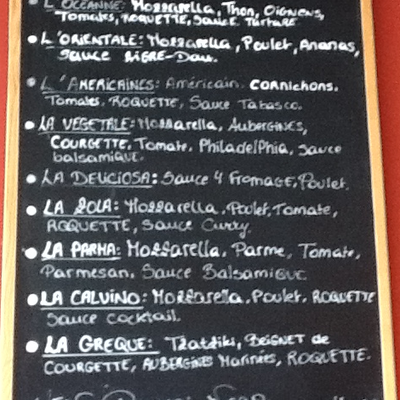 L'OCÉANNE: Mozzarella, Thon, Oignons,
Tomates, ROQUETTE, Sauce Tartare
L'ORIENTALE: Mozzarella, Poulet, Ananas,
Sauce AIGRE-Doux.
L'AMERICAINES: Américain. CORNichons.
Tomates, ROQUETTE, Sauce Tabasco.
LA VEGETALE: Mozzarella, AUBERGINES,
COURGETTE, Tomate, Philadelphia, Sauce
balsamique.
LA DELICIOSA: Sauce 4 Fromage, Poulet.
LA SOLA: Mozzarella, Poulet, Tomate,
ROQUETTE, Sauce Curry.
LA PARMA: Mozzarella, Parme, Tomate,
Parmesan, Sauce Balsamique
LA CALVINO: Mozzarella, Poulet, ROQUETTE
Sauce Cocktail.
LA GREQUE: Tzatziki, BEIGNET de
COURGETTE, AUBERGINES Marinées, ROQUETTE.